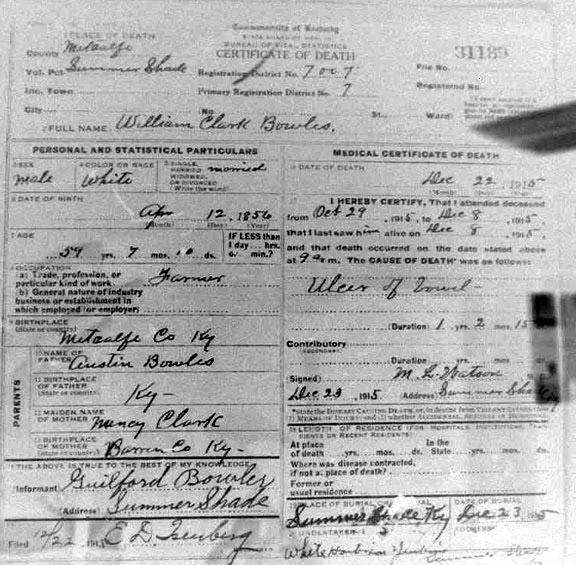 PLACE OF DEATH
Commonwealth of Kentucky
STATE BOARD OF HEALTH
BUREAU OF VITAL STATISTICS
CERTIFICATE OF DEATH
County Metcalfe
File No. 31189
Vot. Pct Summer Shade
Registration District No. 7007
Registered No.
Inc. Town
Primary Registration District No. 7
City
(No.
St.,
Ward)
FULL NAME William Clark Bowles.
PERSONAL AND STATISTICAL PARTICULARS
SEX
male
COLOR OR RACE
White
SINGLE,
MARRIED
WIDOWED,
OR DIVORCED
(Write the word)
married
DATE OF BIRTH
Apr 12, 1856
(Month) (Day) (Year)
AGE
59 yrs. 7 mos. 10 ds.
IF LESS than
1 day ... hrs.
or min.?
OCCUPATION
(a) Trade, profession, or
particular kind of work
Farmer
(b) General nature of industry
business or establishment in
which employed (or employer)
BIRTHPLACE
(State or country)
Metcalfe Co Ky
PARENTS
10 NAME OF
FATHER
Austin Bowles
11 BIRTHPLACE
OF FATHER
(State or country)
Ky-
12 MAIDEN NAME
OF MOTHER
Nancy Clark
13 BIRTHPLACE
OF MOTHER
(State or country)
Barren Co Ky-
THE ABOVE IS TRUE TO THE BEST OF MY KNOWLEDGE
Informant Guilford Bowles
(Address) Summer Shade
Filed 12/22 191 E D Isenberg
MEDICAL CERTIFICATE OF DEATH
DATE OF DEATH
Dec 22, 1915
(Month) (Day) (Year)
I HEREBY CERTIFY, That I attended deceased
from Oct 29 1915, to Dec 8, 1915,
that I last saw him alive on Dec 8, 1915,
and that death occurred on the date stated above
at 9 a m. The CAUSE OF DEATH* was as follows:
Ulcer of bowel
(Duration) 1 yrs. 2 mos. 15 ds.
Contributory
(SECONDARY)
(Duration) yrs. mos. ds.
(Signed) M. L. Watson
Dec 23, 1915 (Address) Summer Shade
*State the DISEASE CAUSING DEATH, or, in deaths from VIOLENT CAUSES, state
(1) MEANS OF INJURY; and (2) whether ACCIDENTAL, SUICIDAL or HOMICIDAL
LENGTH OF RESIDENCE (FOR HOSPITALS, INSTITUTIONS, TRANSIENTS OR RECENT RESIDENTS)
At place
of death yrs. mos. ds.
In the
State yrs. mos. ds.
Where was disease contracted,
if not at place of death?
Former or
usual residence
PLACE OF BURIAL
DATE OF BURIAL
Summer Shade Ky Dec 23, 1915
UNDERTAKER
ADDRESS
Summer Shade